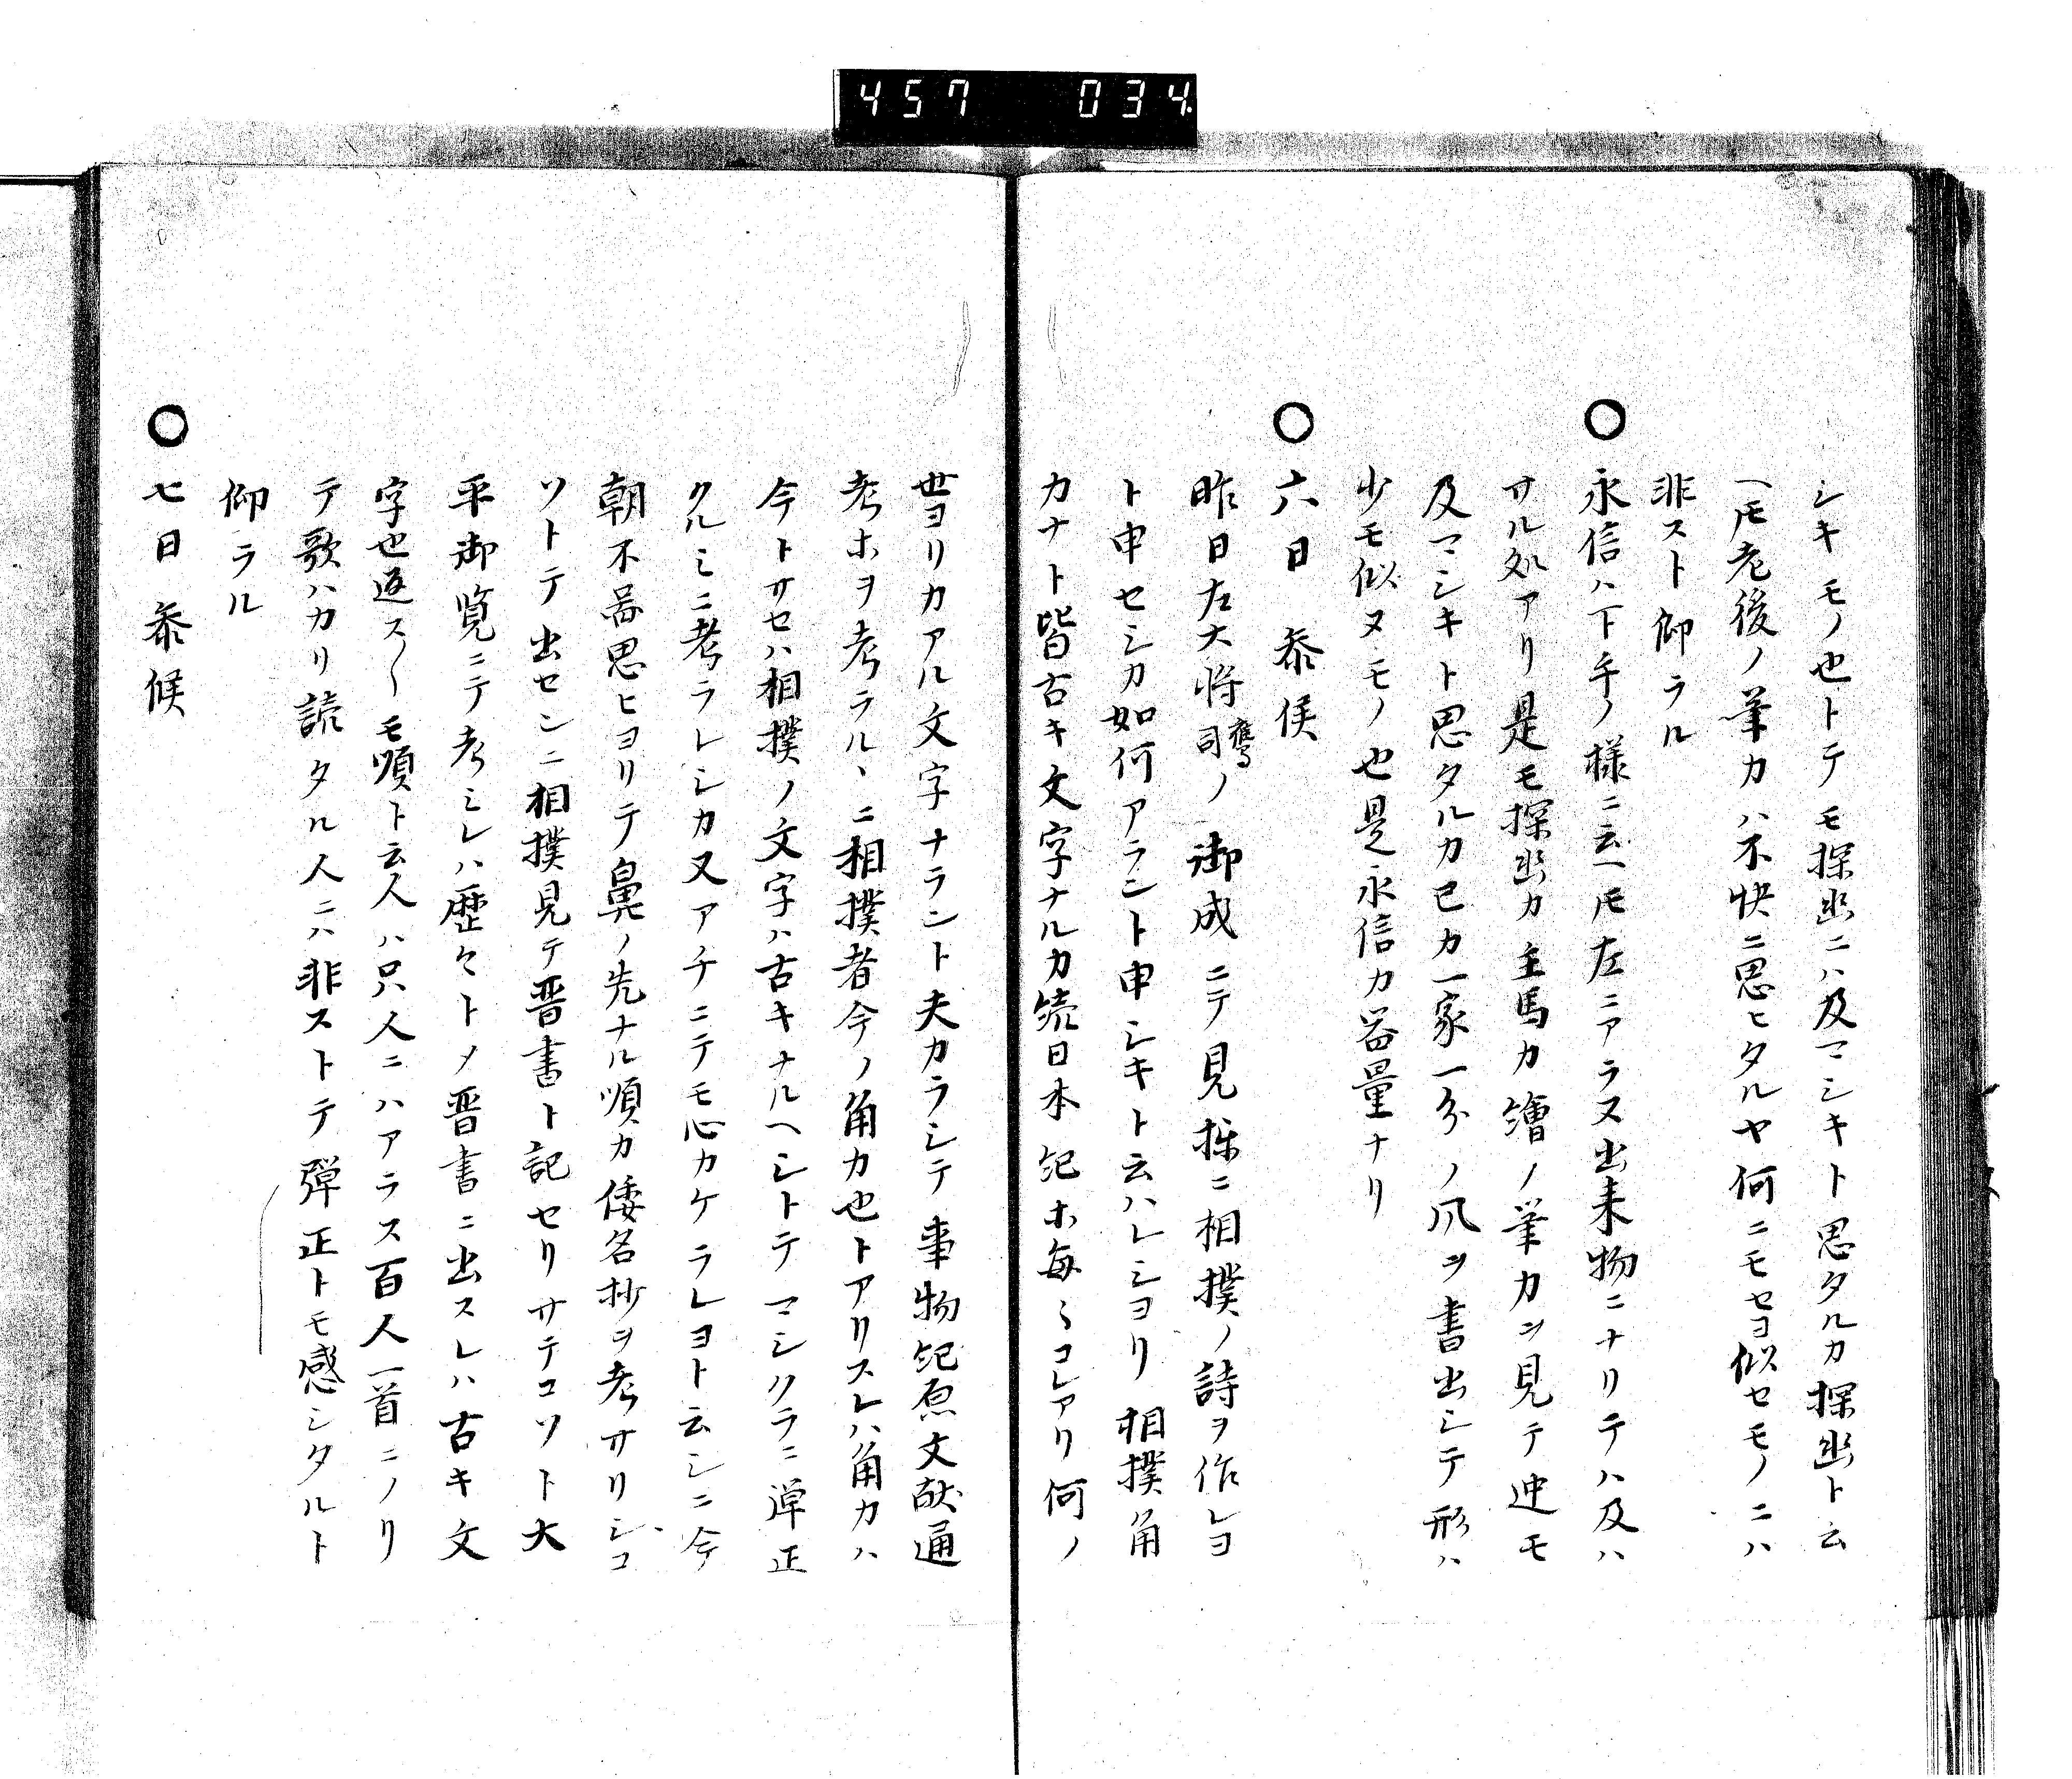 457 034
シキモノ也トテモ探幽ニハ及マシキト思タルカ探幽ト云
ヘ𪜈老後ノ筆カハ不快ニ思ヒタルヤ何ニモセヨ似セモノニハ
非スト仰ラル
○永信ハ下手ノ様ニ云ヘ𪜈左ニアラス出来物ニナリテハ及ハ
サル処アリ是モ探幽カ主馬カ繪ノ筆カヲ見テ迚モ
及マシキト思タルカ已カ一家一分ノ風ヲ書出シテ形ハ
少モ似ヌモノ也是永信カ器量ナリ
○六日 参候
昨日左大将鷹司ノ御成ニテ見採ニ相撲ノ詩ヲ作レヨ
ト申セシカ如何アラント申シキト云ハレシヨリ相撲角
力ナト皆古キ文字ナルカ続日本紀ホ毎〻コレアリ何ノ
世ヨリカアル文字ナラント夫カラシテ事物紀原文献通
考ホヲ考ラルヽニ相撲者今ノ角力也トアリスレハ角力ハ
今トサセハ相撲ノ文字ハ古キナルヘシトテマシクラニ弾正
クルミニ考ラレシカ又アチニテモ心カケラレヨト云シニ今
朝不啚思ヒヨリテ鼻ノ先ナル順カ倭名抄ヲ考サリシコ
ソトテ出センニ相撲見テ晋書ト記セリサテコソト大
平御覧ニテ考ミレハ歴々トメ晋書ニ出スレハ古キ文
字也返ス〱モ順ト云人ハ只人ニハアラス百人一首ニノリ
テ歌ハカリ読タル人ニハ非ストテ弾正トモ感シタルト
仰ラル
○七日 参候